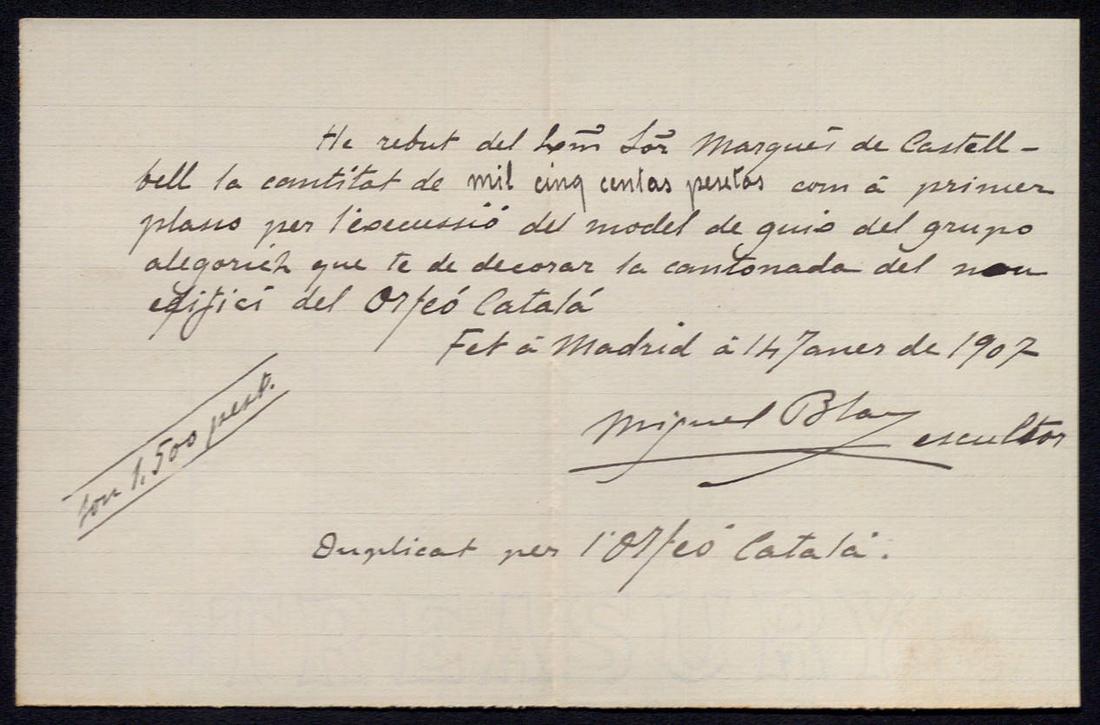 He rebut del Exm̃ Sõr Marqués de Castell-
bell la cantitat de mil cinq centas pesetas com á primer
plaso per l'execussió del model de guix del grupo
alegorich que te de decorar la cantonada del nou
edifici del Orfeó Catalá
Fet á Madrid á 14 Janer de 1907
Miguel Blay escultor
son 1,500 peset.
Duplicat per l'Orfeó Catalá.
TREASURY